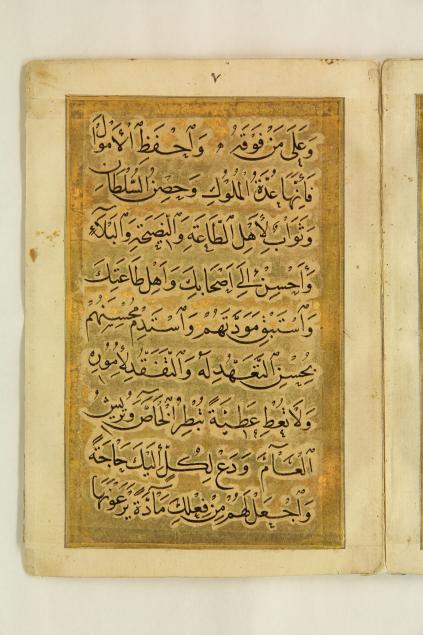 ٧
وَعَلَى مَنْ فَوْقَهُ وَاحْفَظِ الْأَمْوَالَ
فَإِنَّهَا عُدَّةُ الْمُلُوكِ وَحِصْنُ السُّلْطَانِ
وَثَوَابٌ لِأَهْلِ الطَّاعَةِ وَالنَّصِيحَةِ وَالْبَلَاءِ
وَأَحْسِنْ إِلَى أَصْحَابِكَ وَأَهْلِ طَاعَتِكَ
وَاسْتَبْقِ مَوَدَّتَهُمْ وَاسْتَدِمْ مُحْسِنَهُمْ
بِحُسْنِ التَّعَهُّدِ لَهُ وَالتَّفَقُّدِ لِأُمُورِهِ
وَلَا تُعْطِ عَطِيَّةً تُبْطِرُ الْخَاصَّ وَتَرِيشُ
الْعَامَّ وَدَعْ لِكُلٍّ إِلَيْكَ حَاجَةً
وَاجْعَلْ لَهُمْ مِنْ فِعْلِكَ مَادَّةً يَرْعَوْنَهَا